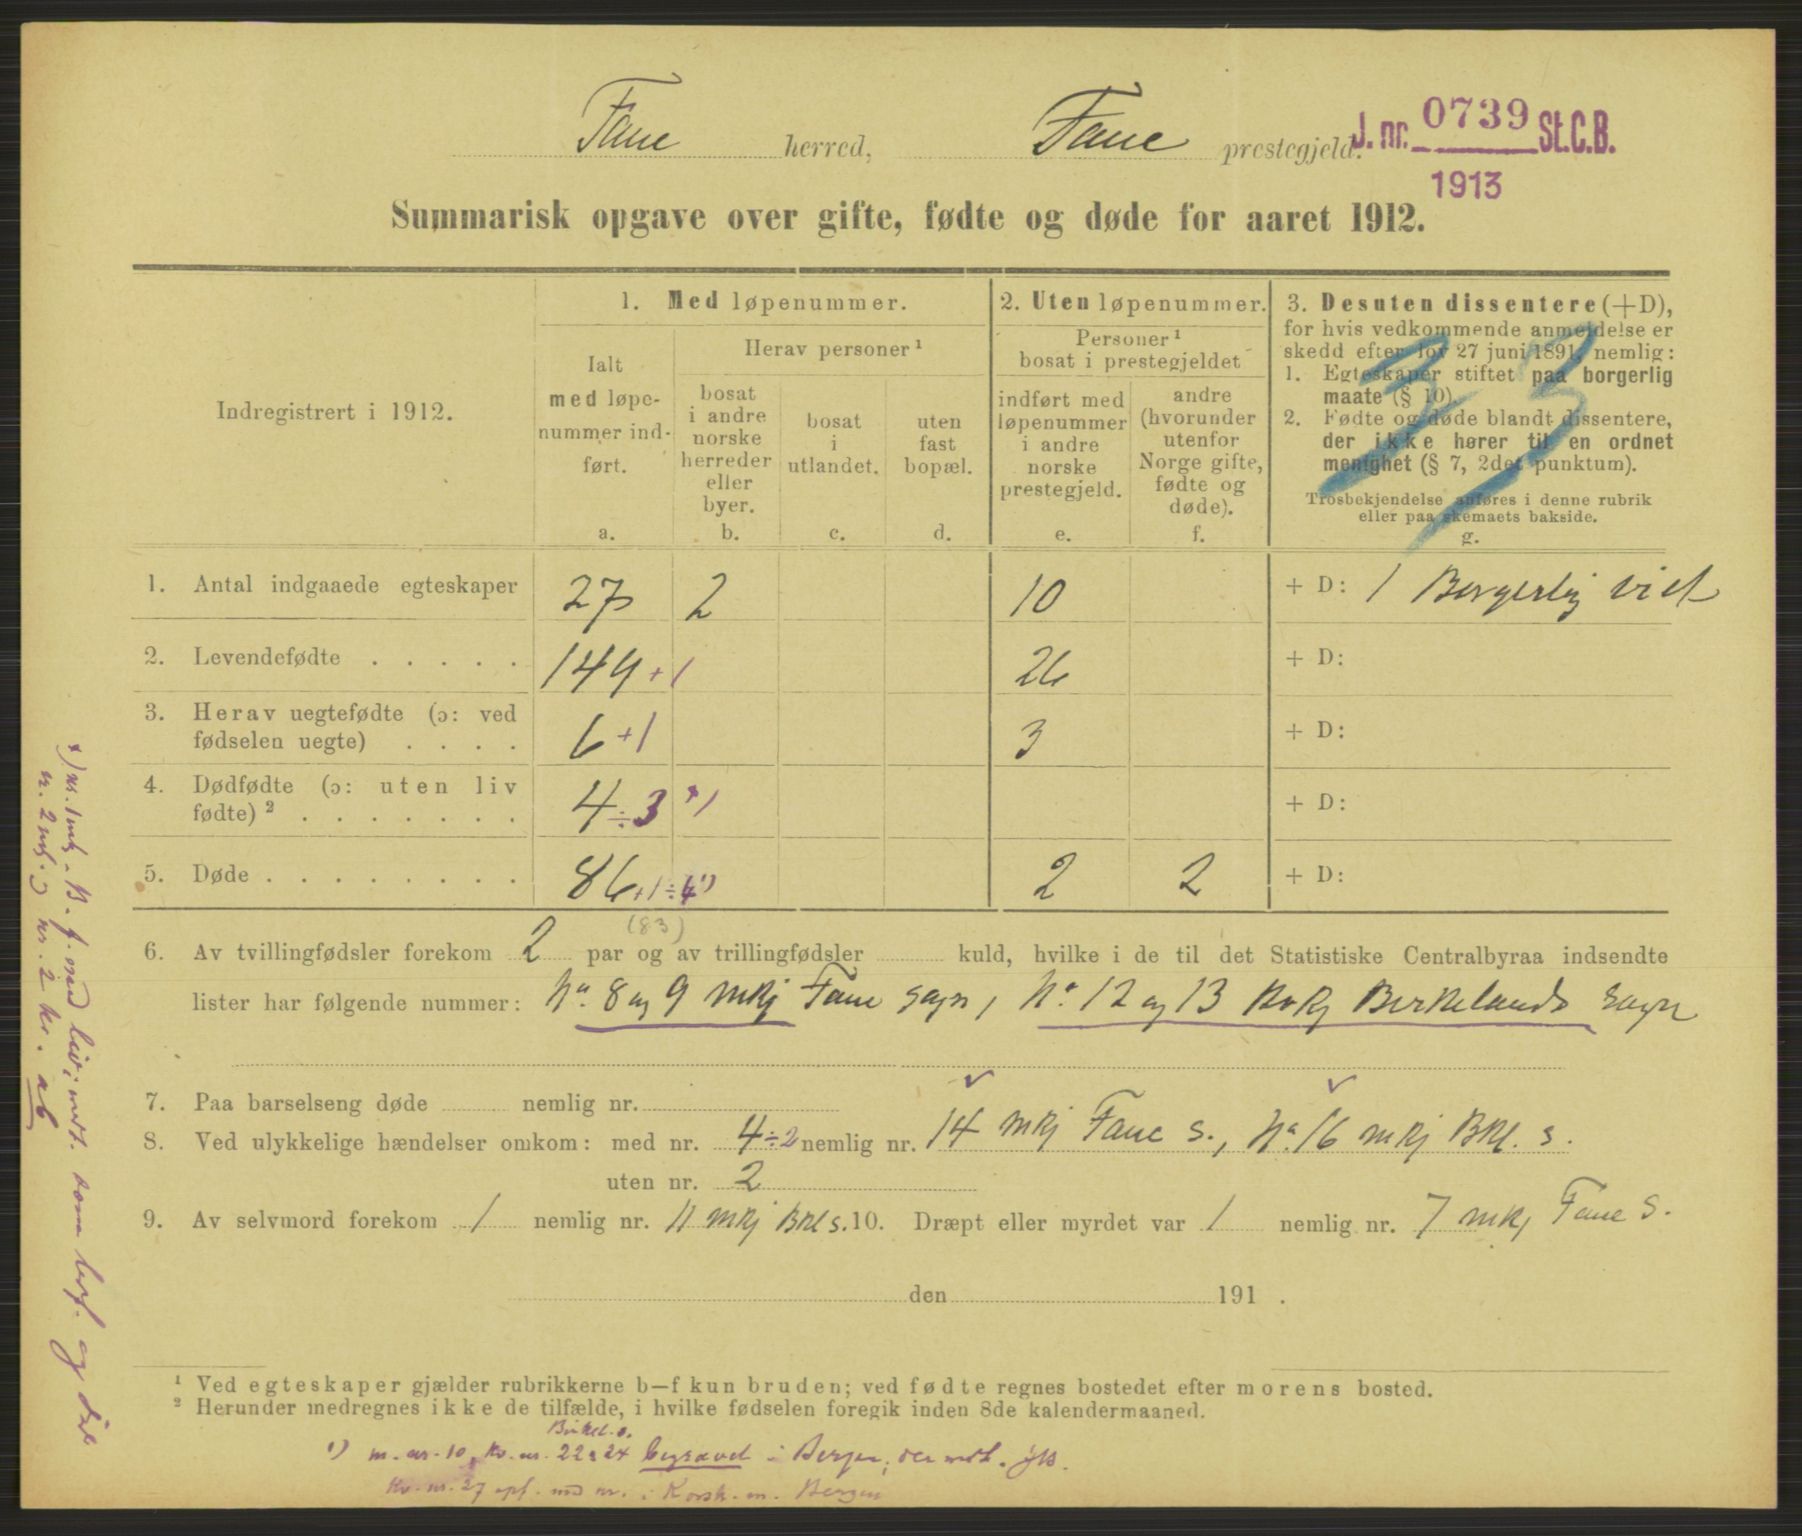 Fane herred, Fane prestegjeld. J. nr. 0739 St.C.B.
1913
Summarisk opgave over gifte, fødte og døde for aaret 1912.
Indregistrert i 1912.
1. Med løpenummer.
Ialt
med løpe-
nummer ind-
ført.
a.
Herav personer ¹
bosat
i andre
norske
herreder
eller
byer.
b.
bosat
i
utlandet.
c.
uten
fast
bopæl.
d.
2. Uten løpenummer.
Personer ¹
bosat i prestegjeldet
indført med
løpenummer
i andre
norske
prestegjeld.
e.
andre
(hvorunder
utenfor
Norge gifte,
fødte og
døde).
f.
3. Desuten dissentere (+D),
for hvis vedkommende anmeldelse er
skedd efter lov 27 juni 1891, nemlig:
1. Egteskaper stiftet paa borgerlig
maate (§ 10).
2. Fødte og døde blandt dissentere,
der ikke hører til en ordnet
menighet (§ 7, 2det punktum).
Trosbekjendelse anføres i denne rubrik
eller paa skemaets bakside.
g.
1. Antal indgaaede egteskaper 27 2 10 + D: 1 Borgerlig viet
2. Levendefødte . . . . . 149 + 1 26 + D:
3. Herav uegtefødte (ɔ: ved
fødselen uegte) . . . . 6 + 1 3 + D:
4. Dødfødte (ɔ: uten liv
fødte) ² . . . . . . . 4 ÷ 3 *) + D:
5. Døde . . . . . . . . 86 + 1 ÷ 4 ¹) 2 2 + D:
(83)
6. Av tvillingfødsler forekom 2 par og av trillingfødsler kuld, hvilke i de til det Statistiske Centralbyraa indsendte
lister har følgende nummer: No. 8 og 9 mkj Fane sogn, No. 12 og 13 kvkj Birkelands sogn
7. Paa barselseng døde nemlig nr.
8. Ved ulykkelige hændelser omkom: med nr. 4 ÷ 2 nemlig nr. 14 mkj Fane s., No. 16 mkj Bkl. s.
uten nr. 2
9. Av selvmord forekom 1 nemlig nr. 11 mkj Bkl s. 10. Dræpt eller myrdet var 1 nemlig nr. 7 mkj Fane s.
den 191 .
¹ Ved egteskaper gjælder rubrikkerne b—f kun bruden; ved fødte regnes bostedet efter morens bosted.
² Herunder medregnes ikke de tilfælde, i hvilke fødselen foregik inden 8de kalendermaaned.
Birkel. s.
¹) m. nr. 10, kv. nr. 22 & 24 begravet i Bergen, der medt.
Kv. nr. 27 opf. med nr. i Korsk. m. Bergen